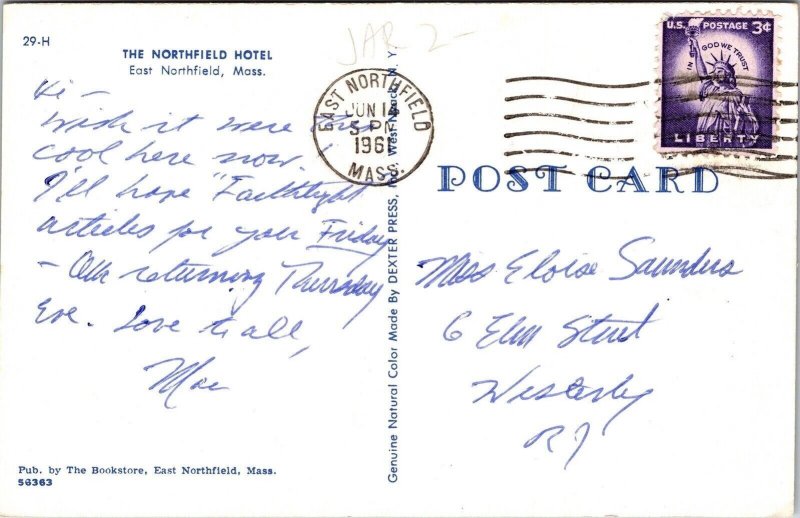 29-H
THE NORTHFIELD HOTEL
East Northfield, Mass.
JAR 2-
Hi -
Wish it were this
cool here now!
I'll have "Faithlight"
articles for you Friday
- returning Thursday
Eve. Love to all,
Mae
Pub. by The Bookstore, East Northfield, Mass.
56363
Genuine Natural Color Made By DEXTER PRESS, INC. West Nyack, N. Y.
EAST NORTHFIELD
JUN 14
5 PM
1961
MASS.
U.S. POSTAGE 3¢
IN GOD WE TRUST
LIBERTY
POST CARD
Miss Eloise Saunders
6 Elm Street
Westerly
RI